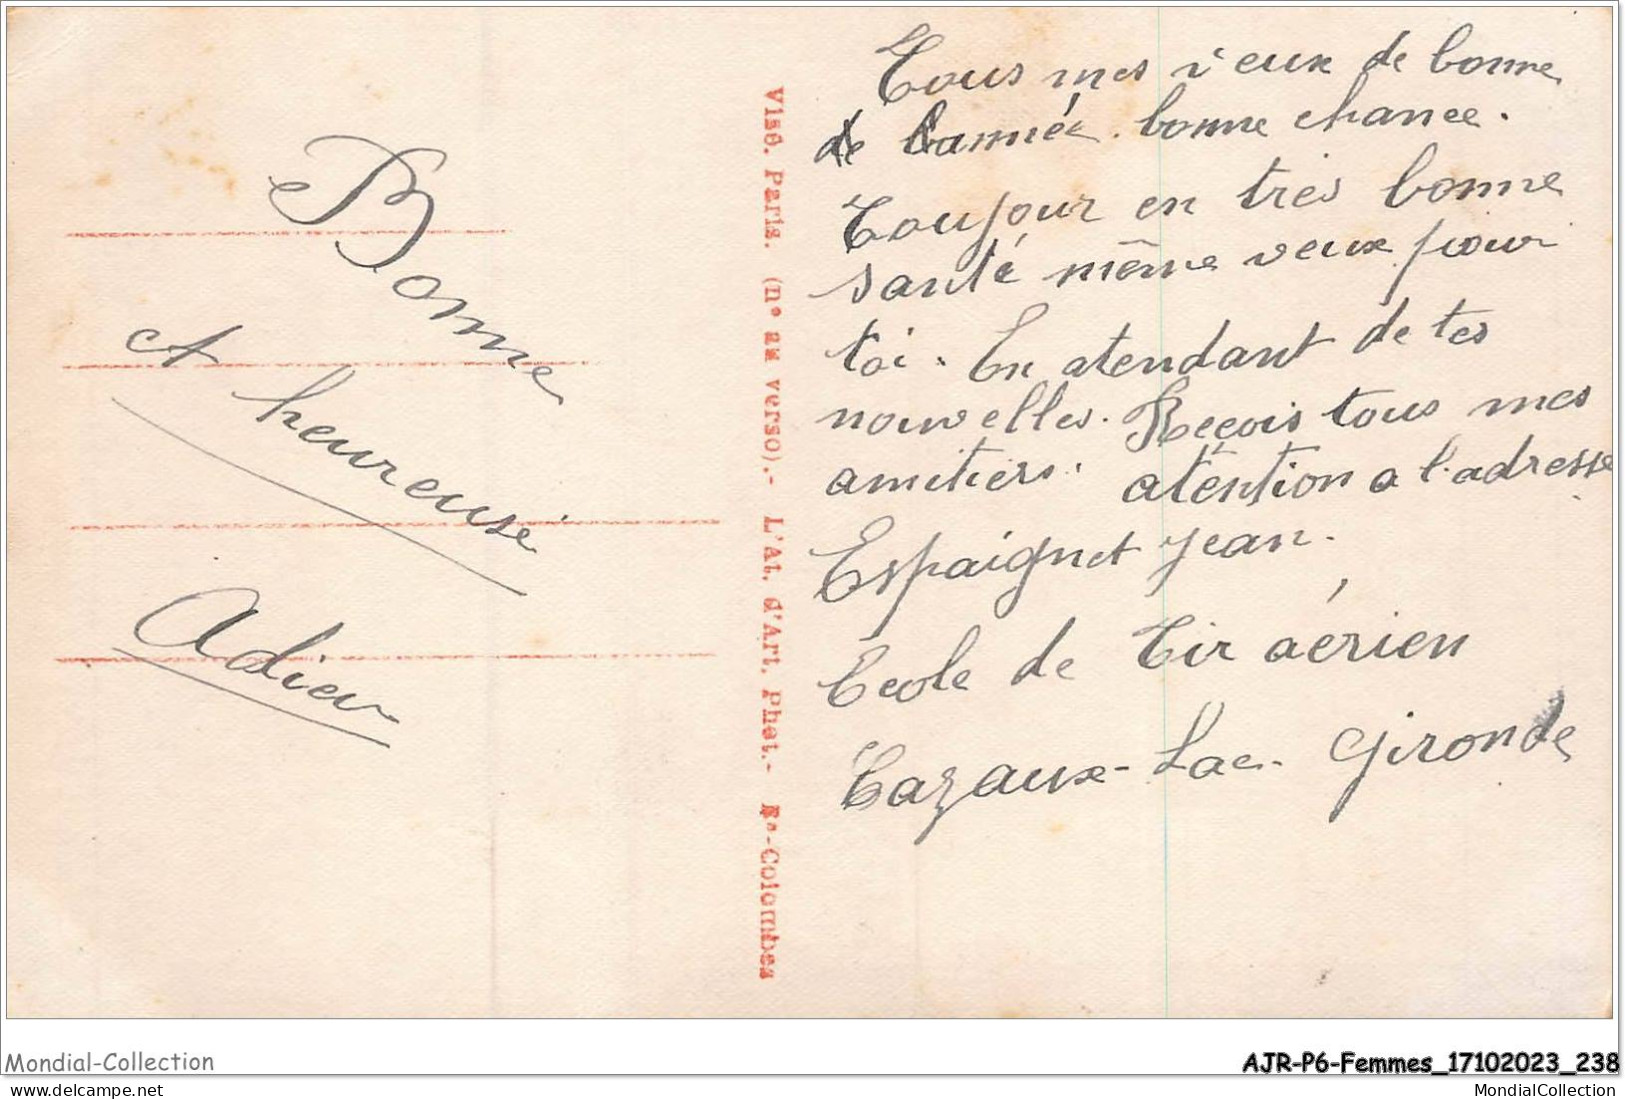 Bonne
et
heureuse
Adieu
Visé. Paris. (n° au verso).- L'At. d'Art. Phot.- Bs-Colombes
Tous mes veux de bonne
de l'année. bonne chance.
Toujour en très bonne
santé même veux pour
toi. En atendant de tes
nouvelles. Reçois tous mes
amitiers. atention a l'adresse
Espaignet Jean.
École de Tir aérien
Cazaux-Lac. Gironde
Mondial-Collection
AJR-P6-Femmes_17102023_238
www.delcampe.net
MondialCollection